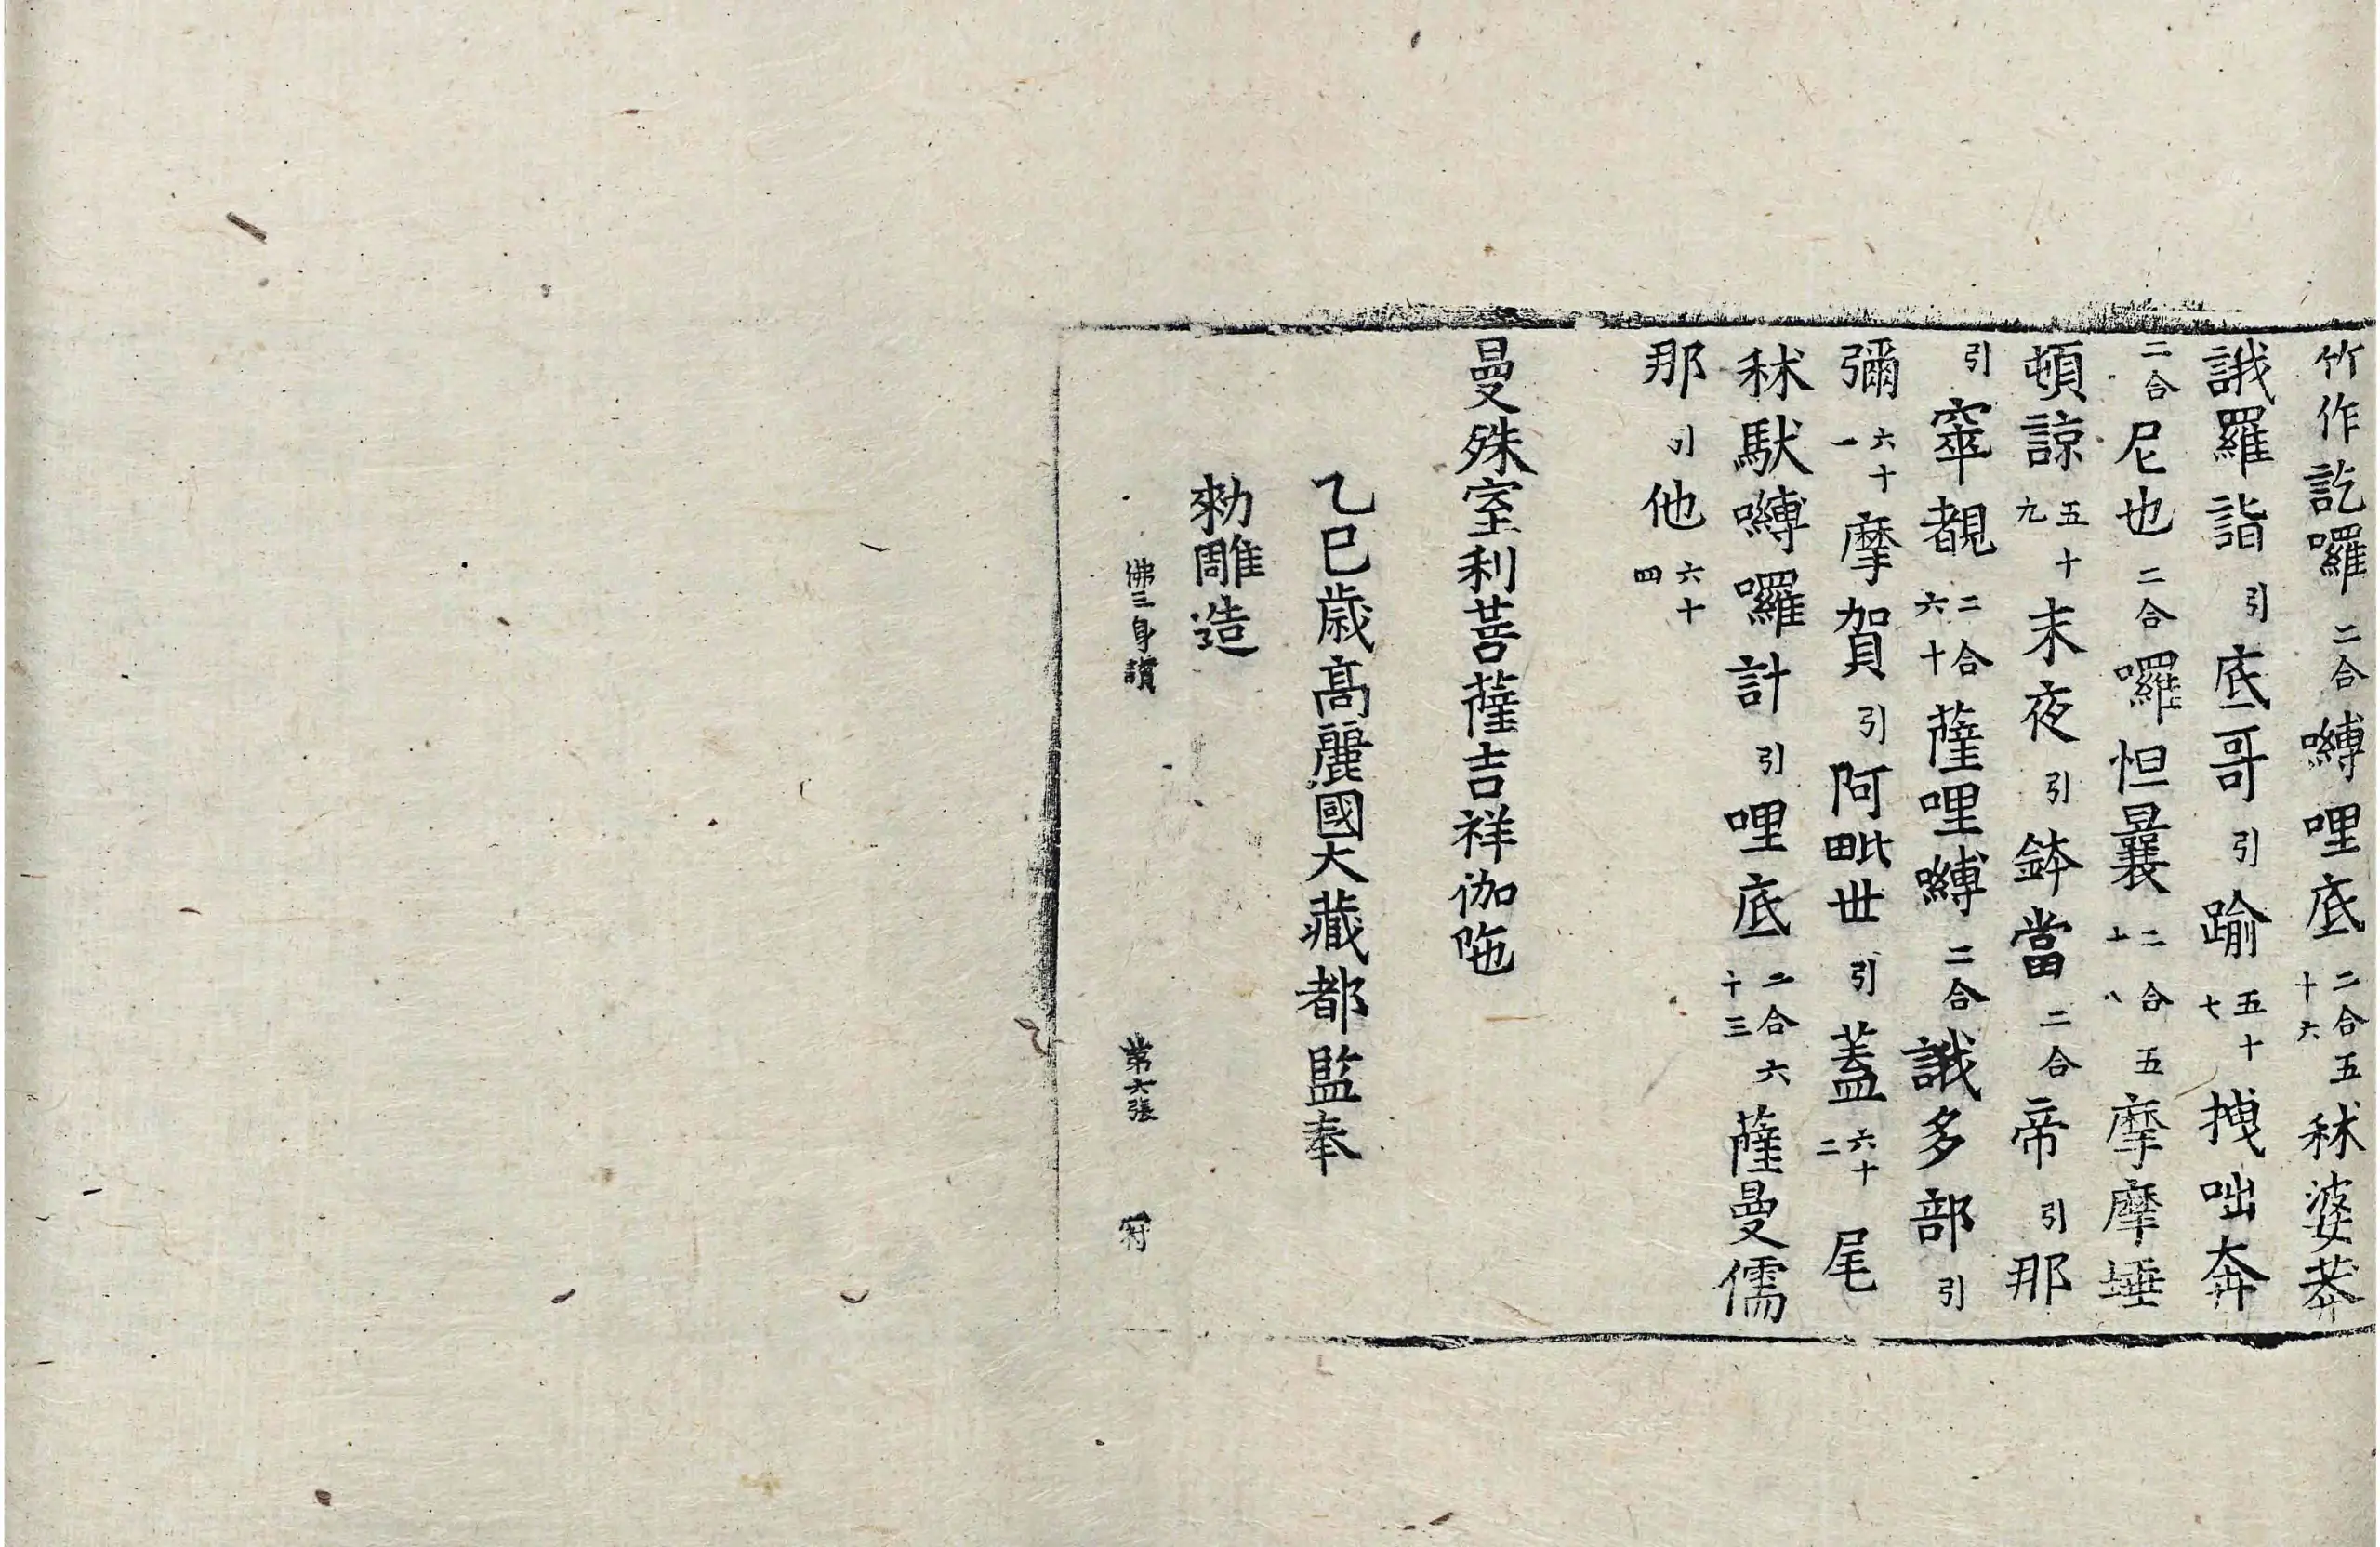 竹作訖囉二合嚩哩底二合五十六秫婆莽
誐羅詣引底哥引踰五十七拽咄奔
二合尼也二合囉怛曩二合五十八摩摩埵
頓諒五十九末夜引鉢當二合帝引那
引窣覩二合六十薩哩嚩二合誐多部引
彌六十一摩賀引阿毗世引蓋六十二尾
秫馱嚩囉計引哩底二合六十三薩曼儒
那引他六十四
曼殊室利菩薩吉祥伽陁
乙巳歳高麗國大藏都監奉
勑雕造
佛三身讃 第六張